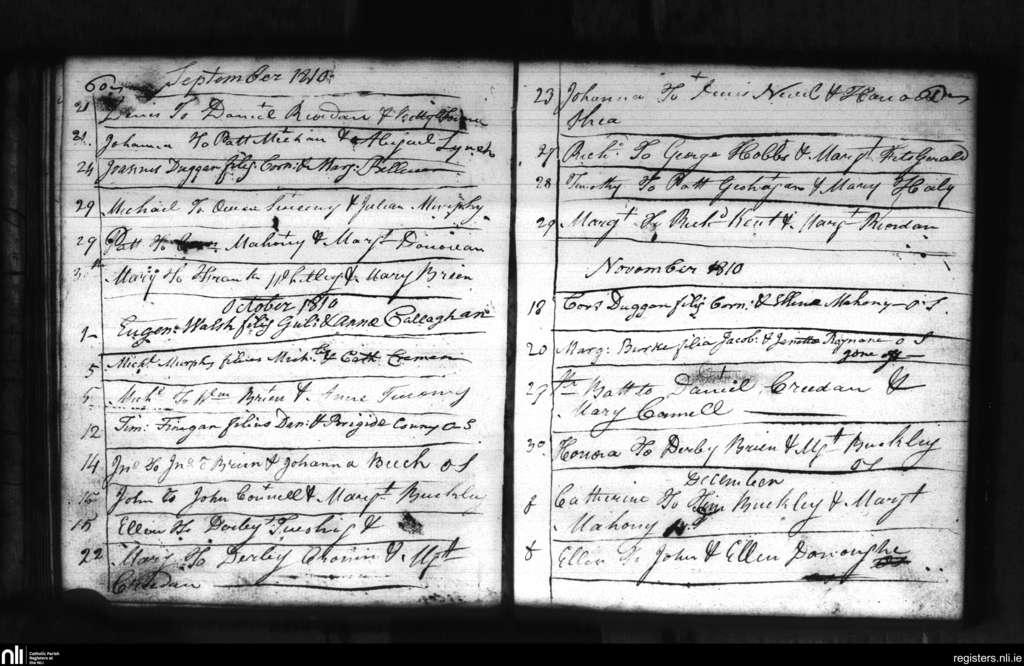 60
September 1810
21 Denis To Daniel Riordan &
21 Johanna To Patt Meehan & Abigail Lynch
24 Joannes Duggan filij Corn: & Marg:
29 Michael To Sweeny & Julian Murphy
29 Patt To Mahony & Margt Donovan
30 Mary To Frank Whitley & Mary Brien
October 1810
1 Eugen: Walsh filij Guli: & Anna Callaghan
5 Mich: Murphy filius Mich: & Cath: Cremen
5 Michl To Wm Brien & Anne Twomy
12 Tim: Finegan filius Dan: & Brigide Conny o S
14 Jno To Jno Brien & Johanna Buck o S
15 John to John Connell & Margt Buckley
15 Ellen To Derby &
22 Mary To Derby Cronin & Mgt
Creedan
23 Johanna To Denis & Hano
Shea
27 Richd To George Hobbs & Margt FitzGerald
28 Timothy To Patt Geohagan & Mary Healy
29 Margt To Richd Kent & Margt Riordan
November 1810
18 Cors Duggan filij Corn: & Ellena Mahony o S.
20 Marg: Burke filia Jacob: & o S
gone off
27 Batt to Daniel Creedan &
Mary Connell
30 Honora To Derby Brien & Mgt Buckley
o S
December
8 Catherine To Tim Buckley & Margt
Mahony
8 Ellen To John & Ellen Donoughe
nli
Catholic Parish
Registers at
the NLI
registers.nli.ie